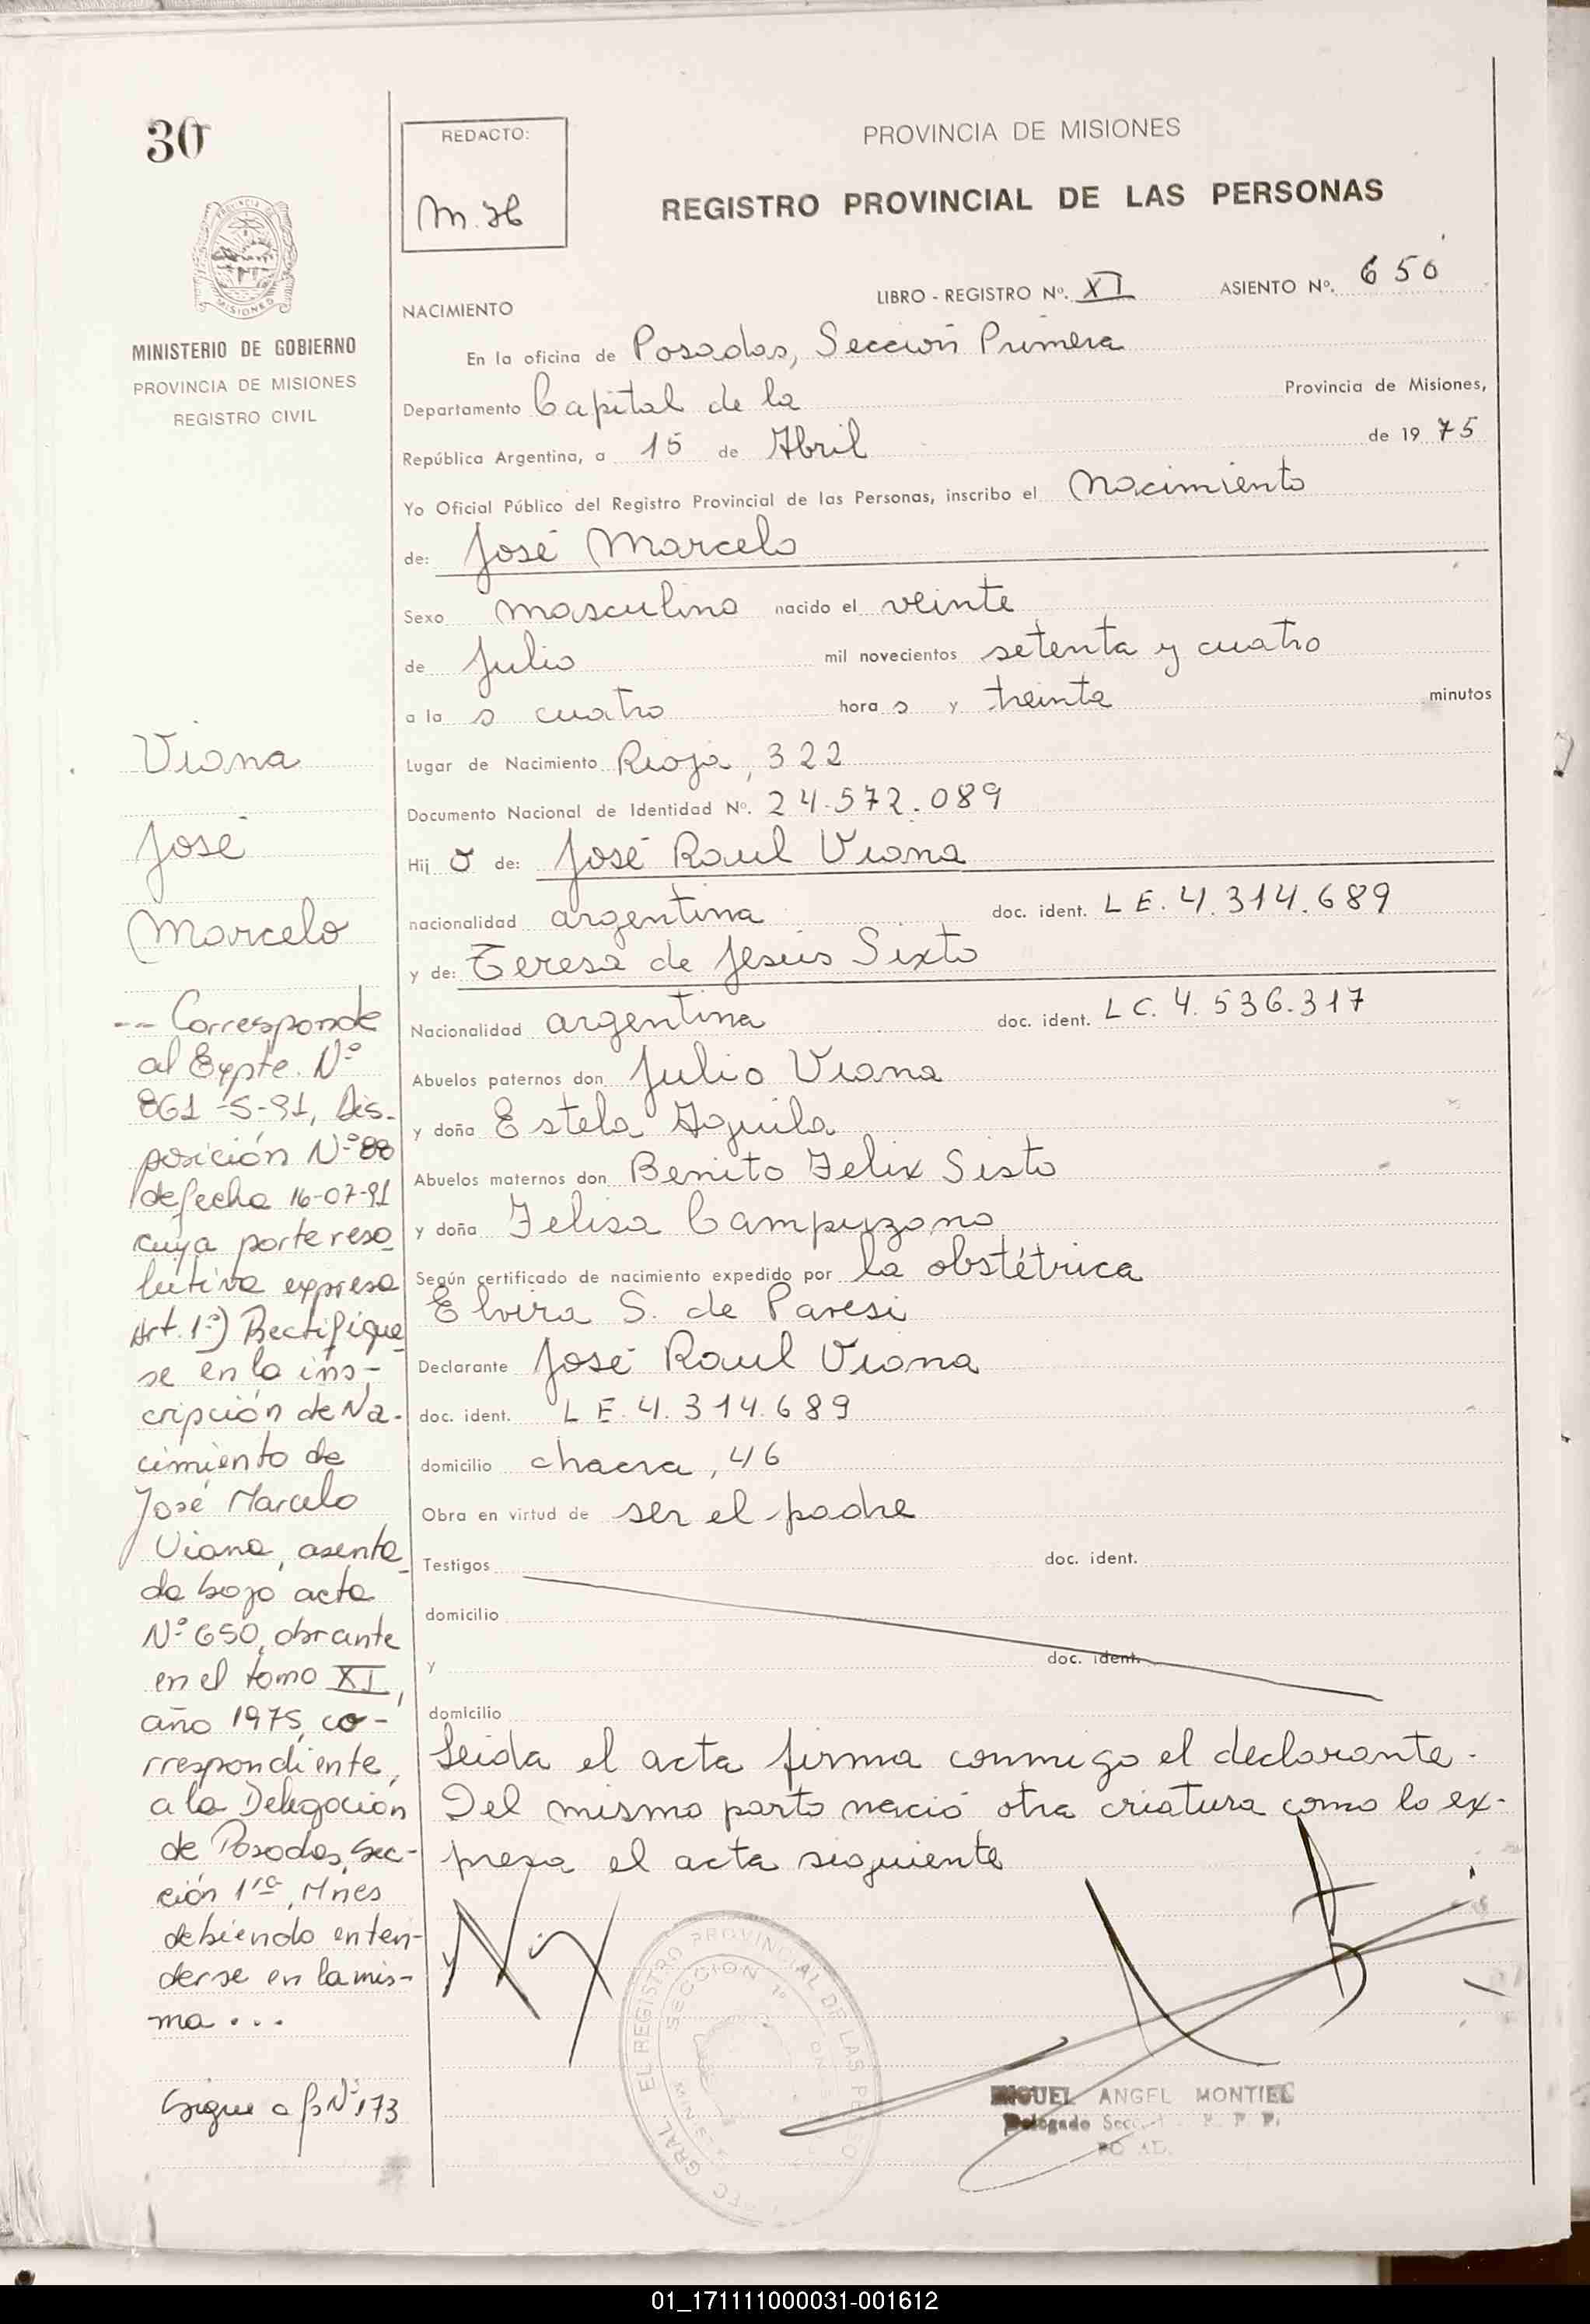 30
REDACTO:
M.H
PROVINCIA DE MISIONES
REGISTRO PROVINCIAL DE LAS PERSONAS
LIBRO - REGISTRO Nº. XI ASIENTO Nº. 650
NACIMIENTO
En la oficina de Posadas, Sección Primera
Departamento Capital de la Provincia de Misiones,
República Argentina, a 15 de Abril de 1975
Yo Oficial Público del Registro Provincial de las Personas, inscribo el Nacimiento
de: José Marcelo
Sexo masculino nacido el veinte
de Julio mil novecientos setenta y cuatro
a la s cuatro hora s y treinta minutos
Lugar de Nacimiento Rioja, 322
Documento Nacional de Identidad Nº. 24.572.089
Hij o de: José Raul Viana
nacionalidad argentina doc. ident. L E. 4.314.689
y de: Teresa de Jesús Sixto
Nacionalidad argentina doc. ident. L C. 4.536.317
Abuelos paternos don Julio Viana
y doña Estela Aguila
Abuelos maternos don Benito Felix Sisto
y doña Felisa Campuzano
Según certificado de nacimiento expedido por la obstétrica
Elvira S. de Paresi
Declarante José Raul Viana
doc. ident. L E. 4.314.689
domicilio chacra, 46
Obra en virtud de ser el padre
Testigos doc. ident.
domicilio
y doc. ident.
domicilio
Leida el acta firma conmigo el declarante.
Del mismo parto nació otra criatura como lo ex-
presa el acta siguiente
PROVINCIA DE
MISIONES
MINISTERIO DE GOBIERNO
PROVINCIA DE MISIONES
REGISTRO CIVIL
Viana
José
Marcelo
--- Corresponde
al Expte. Nº
861-S-91, Dis-
posición Nº 88
de fecha 16-07-91
cuya parte reso
lutiva expresa
Art. 1º) Rectifique
se en la ins-
cripción de Na-
cimiento de
José Marcelo
Viana, asenta
da bajo acta
Nº 650, obrante
en el tomo XI,
año 1975, co-
rrespondiente,
a la Delegación
de Posadas, Sec-
ción 1ra, Mnes
debiendo enten-
derse en la mis-
ma...
Sigue a fs Nº 173
EL REGISTRO PROVINCIAL DE LAS
SECCION 1º
MIGUEL ANGEL MONTIEL
Delegado
01_171111000031-001612